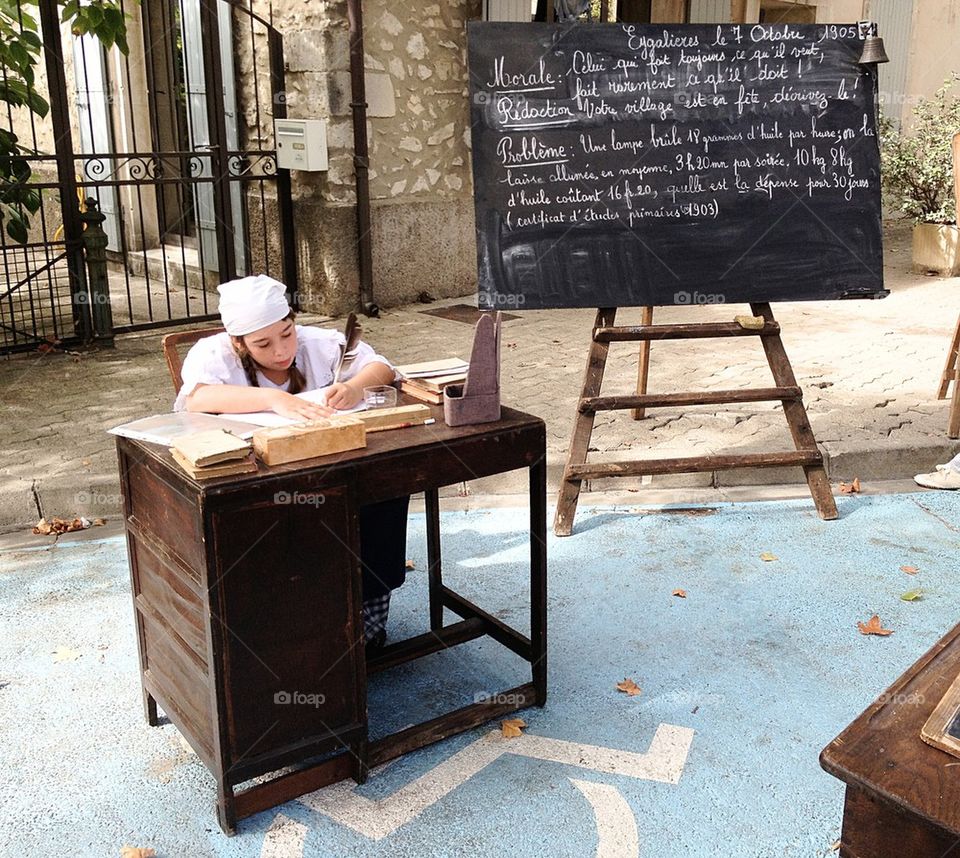 Eygalieres le 7 Octobre 1905
Morale: Celui qui fait toujours ce qu'il veut,
fait rarement ce qu'il doit!
Rédaction Votre village est en fête, décrivez-le!
Problème: Une lampe brûle 18 grammes d'huile par heure; on la
laisse allumée, en moyenne, 3h20mn par soirée, 10 kg 8 hg
d'huile coûtant 16 fr.20, quelle est la dépense pour 30 jours
(certificat d'études primaires 1903)
foap